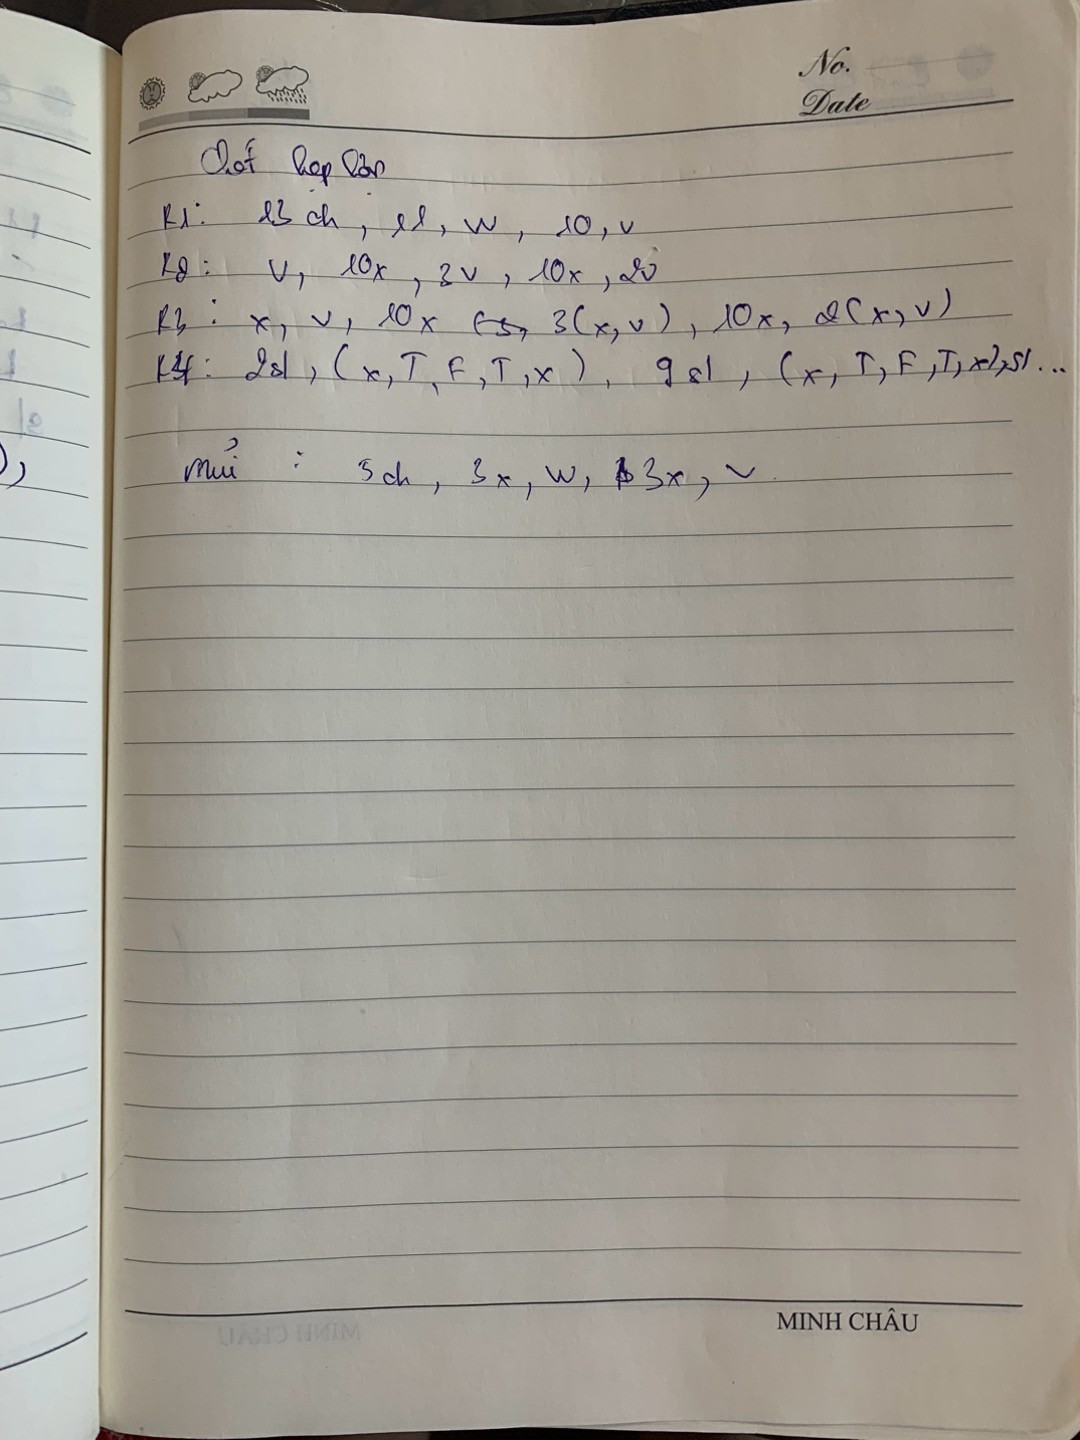 No.
Date
R1: 13 ch, 11, W, 10, V
R2: V, 10x, 3V, 10x, 2V
R3: x, V, 10x, 3(x, V), 10x, 2(x, V)
R4: 2sl, (x, T, F, T, x), 9 sl, (x, T, F, T, x), sl...
mũi : 5 ch, 3x, W, 3x, V
MINH CHÂU